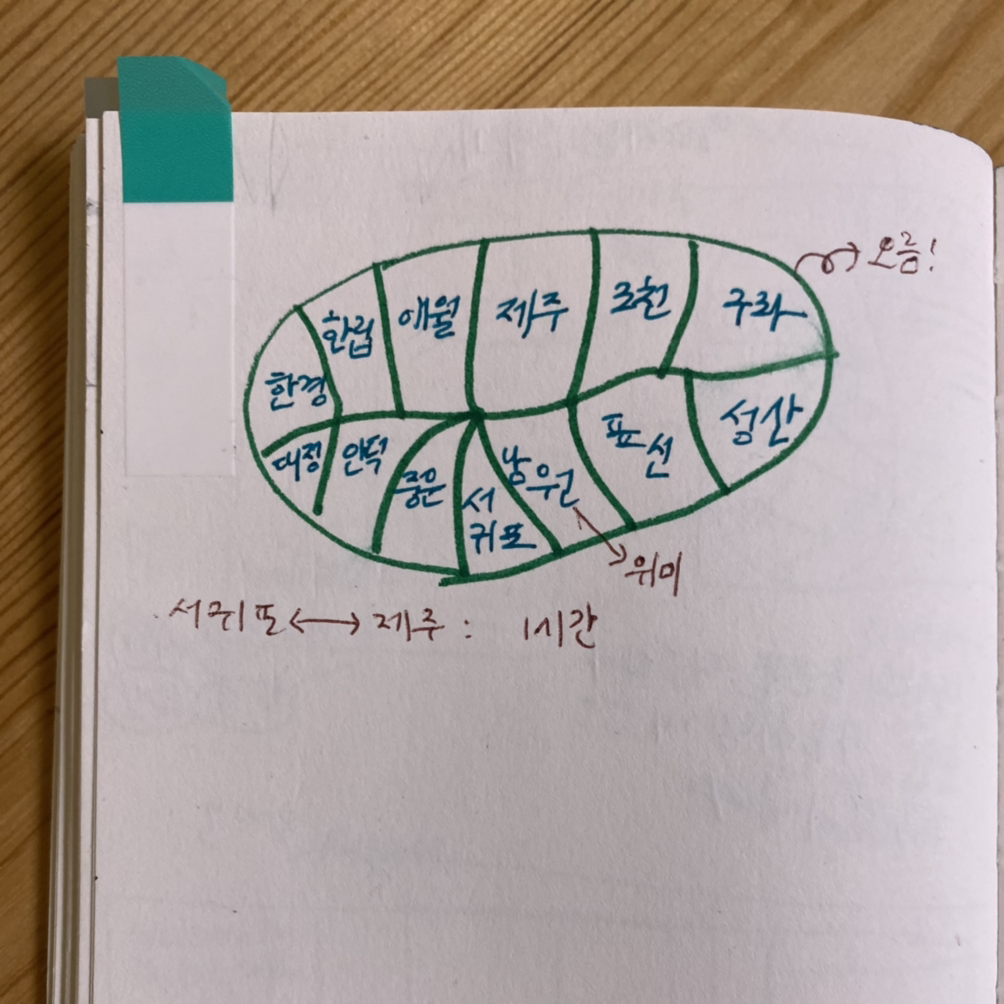 오름!
한경
한림
애월
제주
조천
구좌
대정
안덕
중문
서
귀포
남
원
표
선
성산
위미
서귀포 ↔ 제주 : 1시간